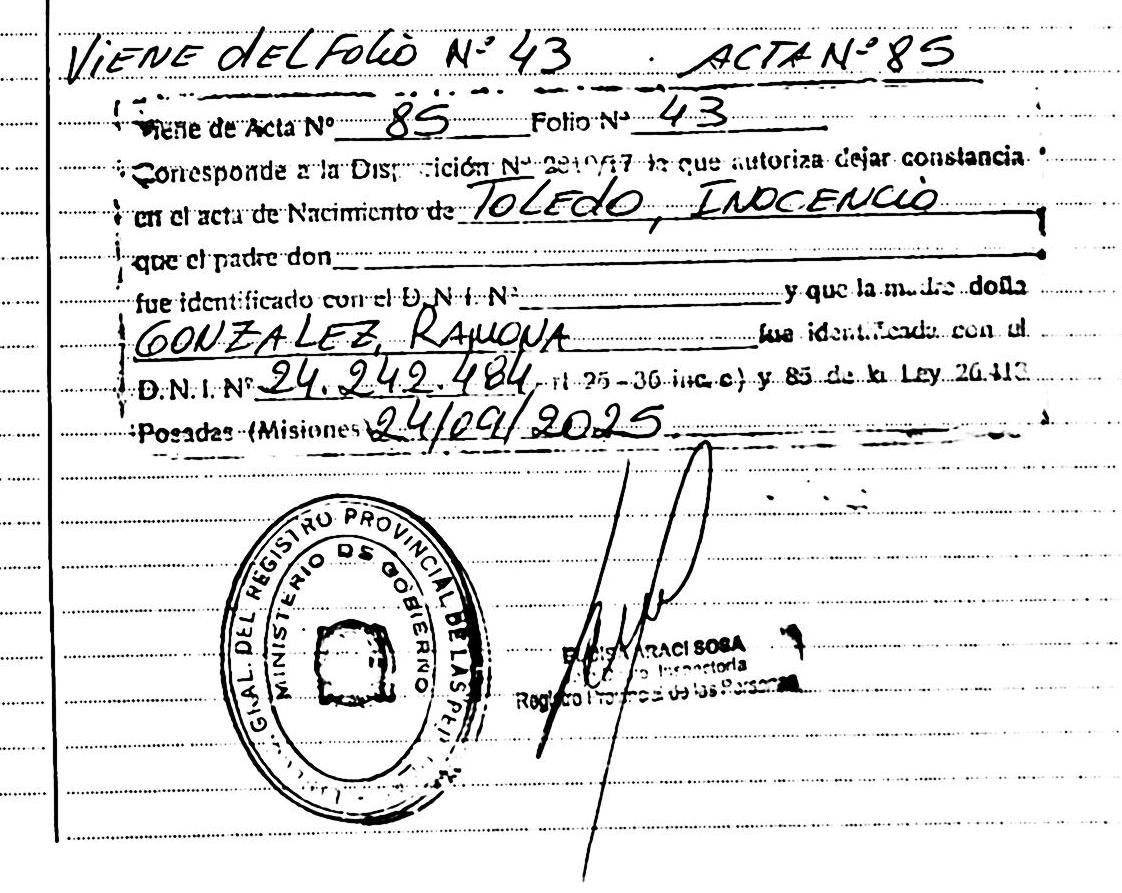 VIENE del Folio Nº 43 . ACTA Nº 85
Viene de Acta Nº 85 Folio Nº 43
Corresponde a la Disposición Nº 2810/17 la que autoriza dejar constancia
en el acta de Nacimiento de TOLEDO, INOCENCIO
que el padre don
fue identificado con el D.N.I. Nº y que la madre doña
GONZALEZ, RAMONA fue identificada con el
D.N.I. Nº 24.242.484 25-36 inc. c) y 85 de la Ley 26.413
Posadas (Misiones) 24/09/2025
GRAL. DEL REGISTRO PROVINCIAL DE LAS
MINISTERIO DE GOBIERNO
ARACI SOSA
Inspectoria
Registro Provincial de las Personas